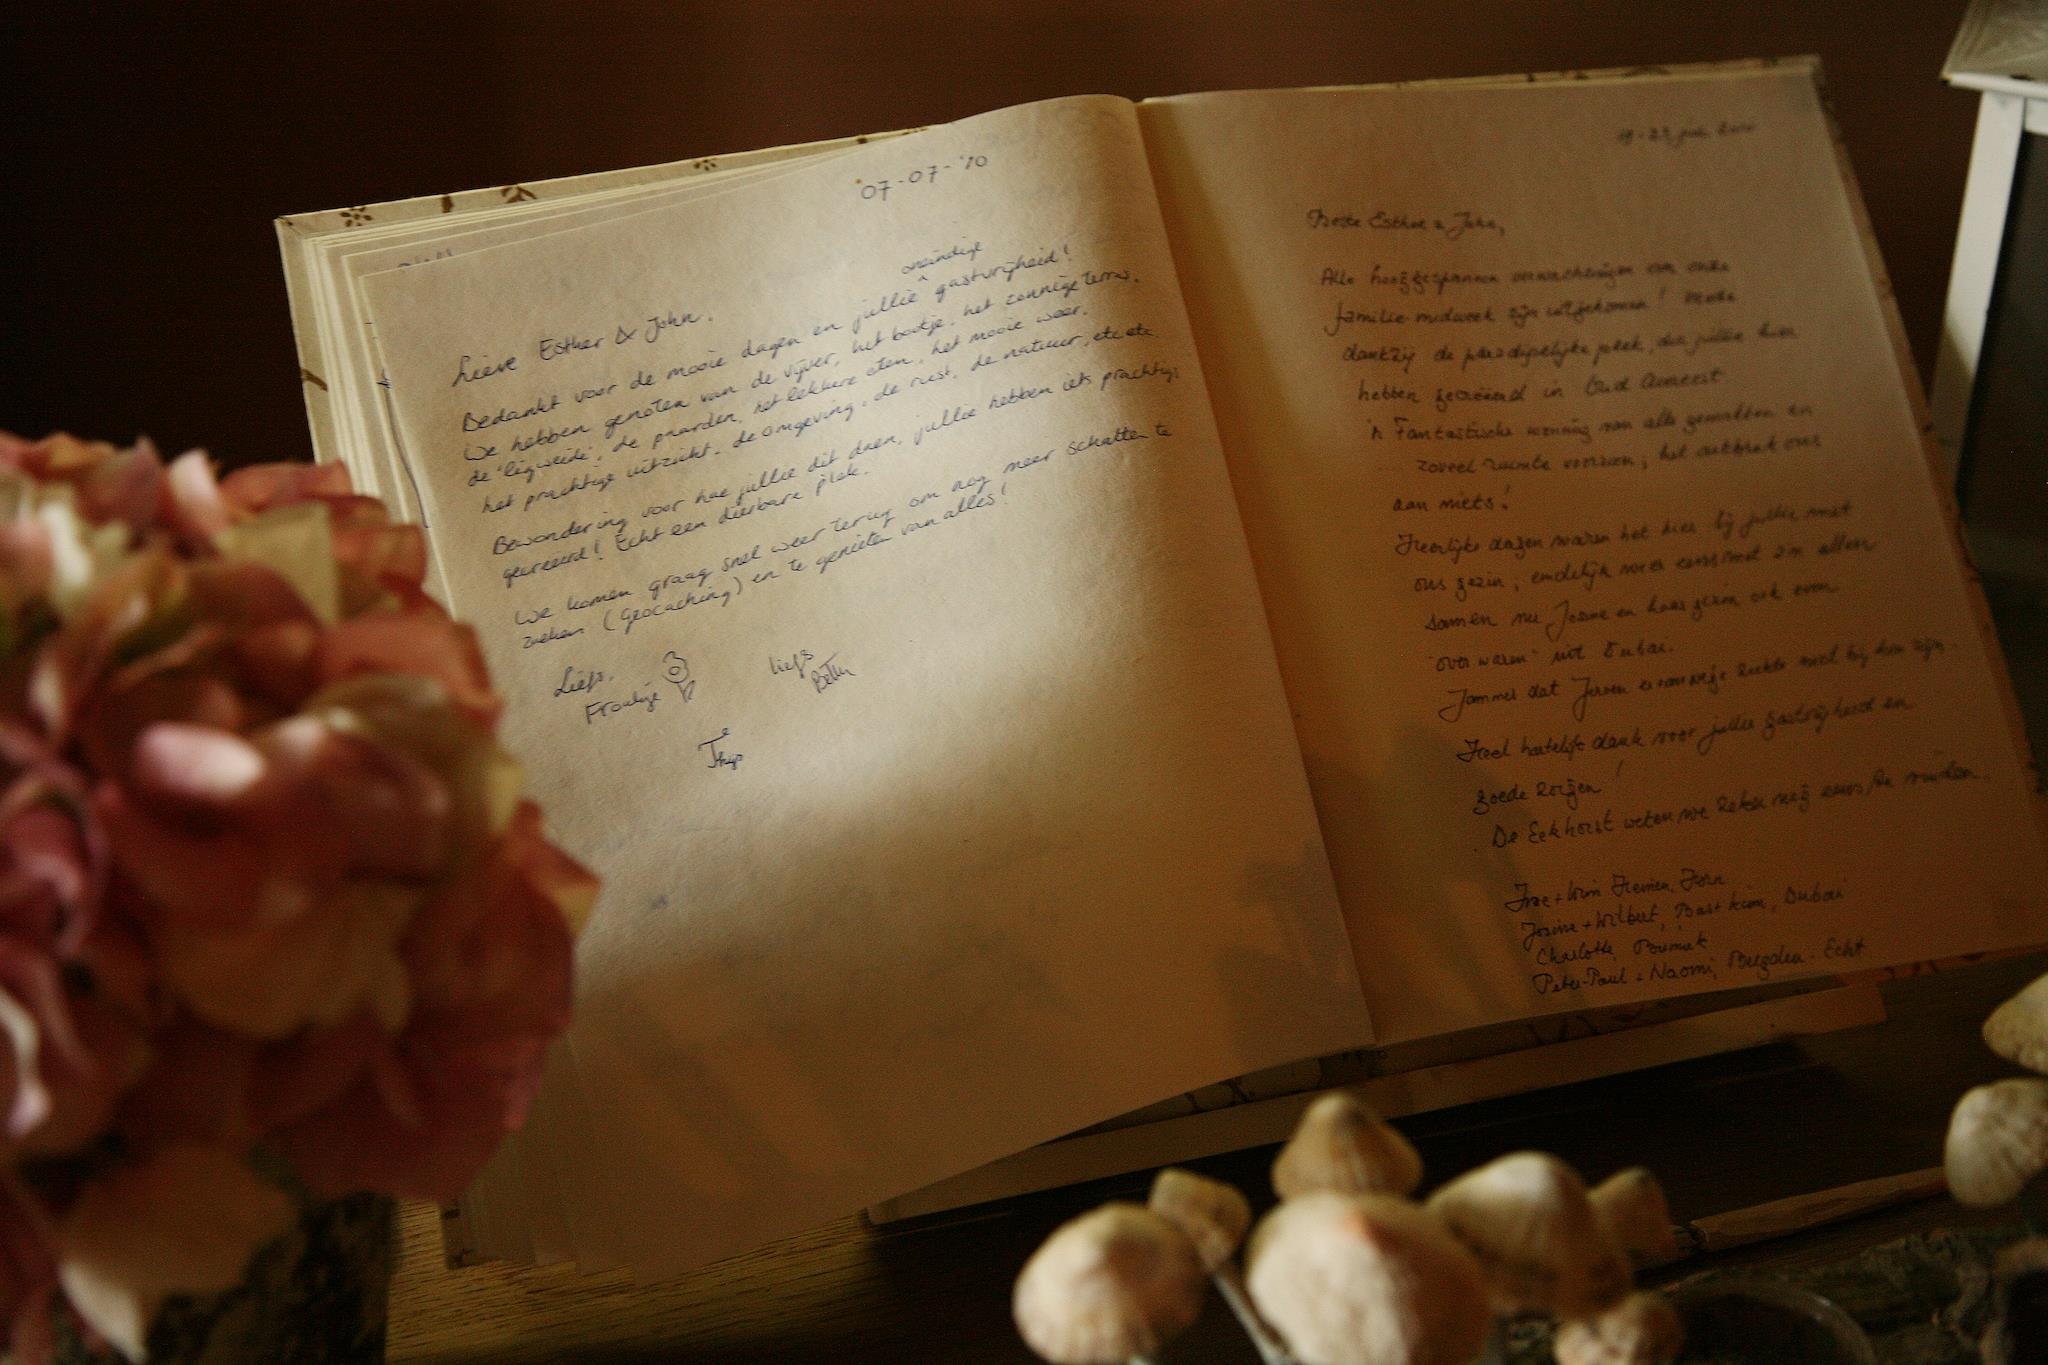 07-07-'10
Lieve Esther & John,
oneindige
Bedankt voor de mooie dagen en jullie gastvrijheid!
We hebben genoten van de vijver, het bootje, het zonnige terras,
de 'ligweide', de paarden, het lekkere eten, het mooie weer,
het prachtige uitzicht, de omgeving, de rust, de natuur, etc etc
Bewondering voor hoe jullie dit doen, jullie hebben iets prachtigs
gecreëerd! Echt een dierbare plek.
We komen graag snel weer terug om nog meer schatten te
zoeken (Geocaching) en te genieten van alles!
Liefs,
Froukje
liefs
Thijs
19-23 juli 2010
Beste Esther & John,
Alle hooggespannen verwachtingen van onze
familie-midweek zijn uitgekomen! Mede
dankzij de paradijselijke plek, die jullie hier
hebben gecreëerd in Oud Avereest.
'n Fantastische woning van alle gemakken en
zoveel ruimte voorzien; het ontbrak ons
aan niets!
Heerlijke dagen waren het hier bij jullie met
ons gezin; eindelijk weer eens met z'n allen
samen nu Josine en haar gezin ook even
"over waren" uit Dubai.
Jammer dat Jeroen vanwege ziekte niet bij kon zijn.
Heel hartelijk dank voor jullie gastvrijheid en
goede zorgen!
De Eekhorst weten we zeker nog eens te vinden.
Josine + Wilbert, Bas + Kim, Dubai
Charlotte,
Peter-Paul + Naomi, - Echt